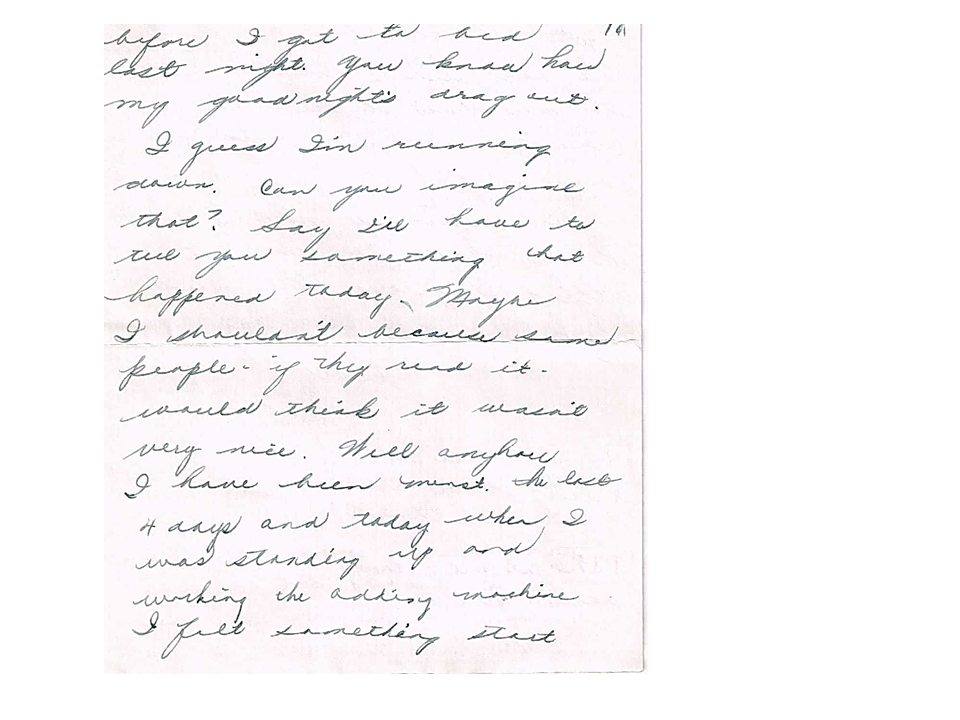 before I got to bed
last night. You know how
my goodnights drag out.
I guess I'm running
down. Can you imagine
that? Say I'll have to
tell you something that
happened today. Maybe
I shouldn't because some
people - if they read it -
would think it wasn't
very nice. Well anyhow
I have been menst. the last
4 days and today when I
was standing up and
working the adding machine
I felt something start